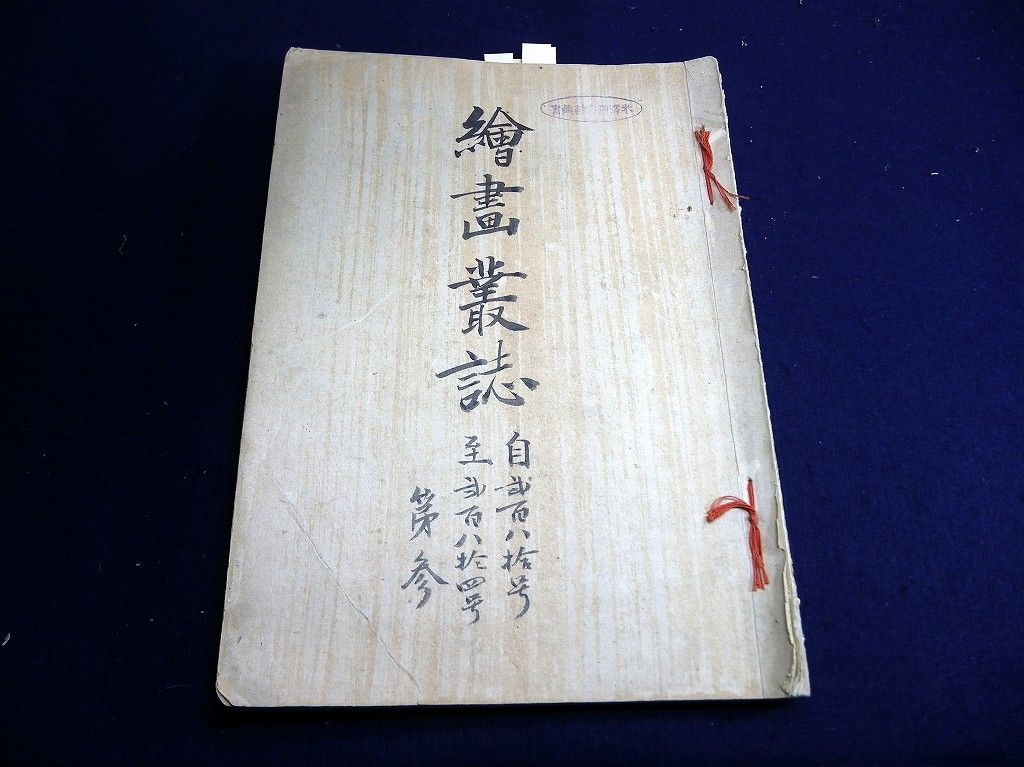 繪畫叢誌
自貳百八拾号
至貳百八拾四号
第参